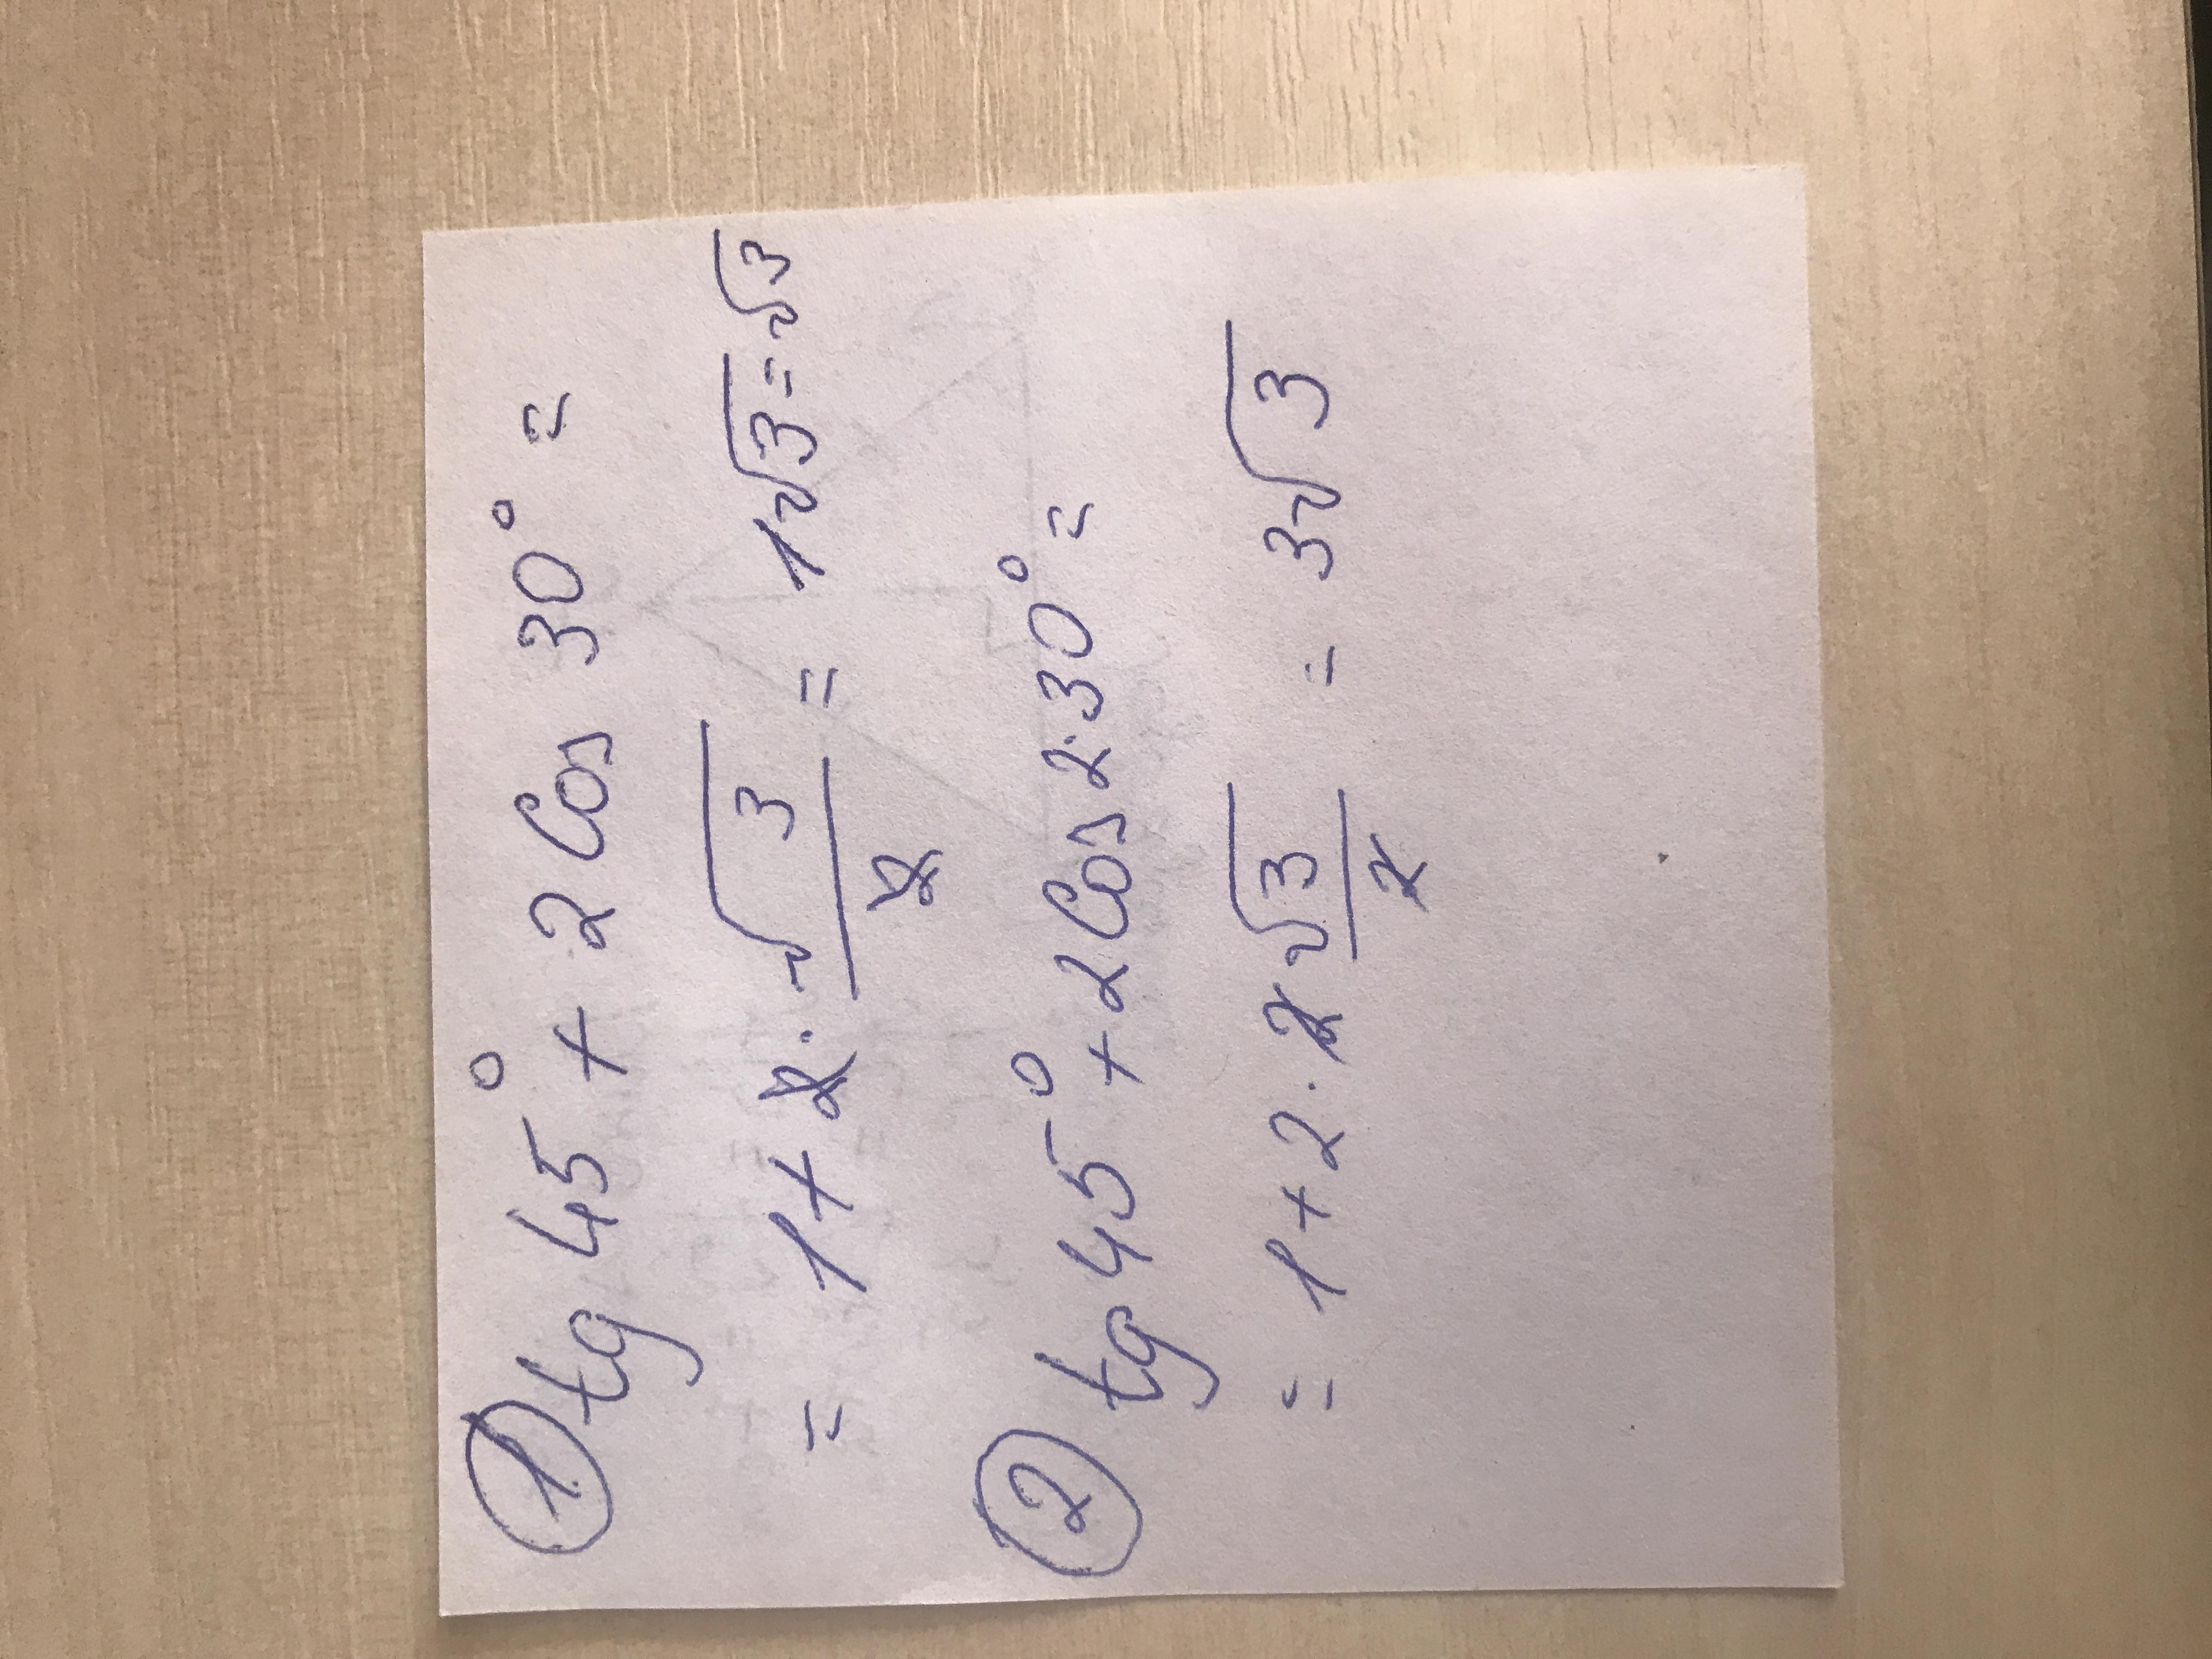 ① tg 45° + 2 Cos 30° =
= 1 + 2 · √3/2 = 1√3 = √3
② tg 45° + 2 Cos 2·30° =
= 1 + 2 · 2 √3/2 = 3√3